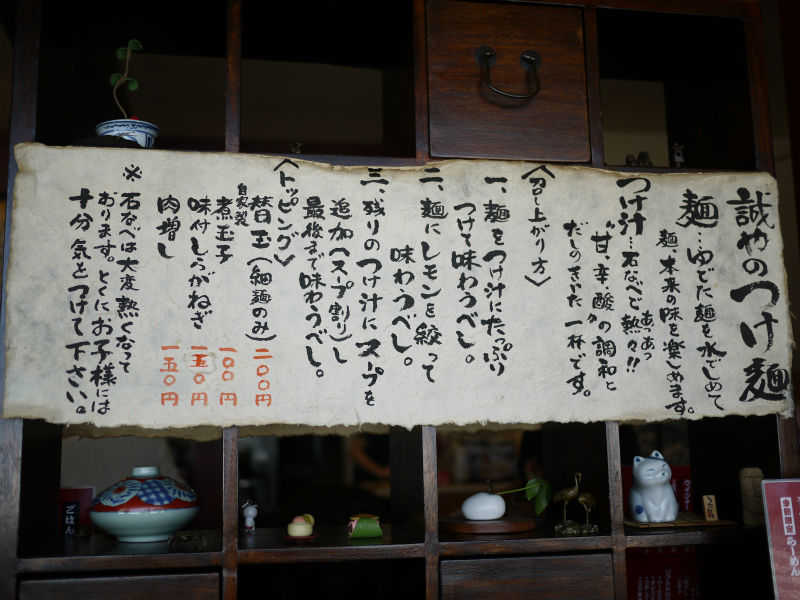 誠やのつけ麺
麺…ゆでた麺を水でしめて
麺、本来の味を楽しめます。
つけ汁…石なべで熱々!!
あつあつ
"甘、辛、酸"の調和と
だしのきいた一杯です。
〈召し上がり方〉
一、麺をつけ汁にたっぷり
つけて味わうべし。
二、麺にレモンを絞って
味わうべし。
三、残りのつけ汁にスープを
追加(スープ割り)し
最後まで味わうべし。
〈トッピング〉
替玉(細麺のみ) 二〇〇円
自家製
煮玉子 一〇〇円
味付しらがねぎ 一五〇円
肉増し 一五〇円
※石なべは大変熱くなって
おります。とくにお子様には
十分気をつけて下さい。
ごはん
季節限定
らーめん